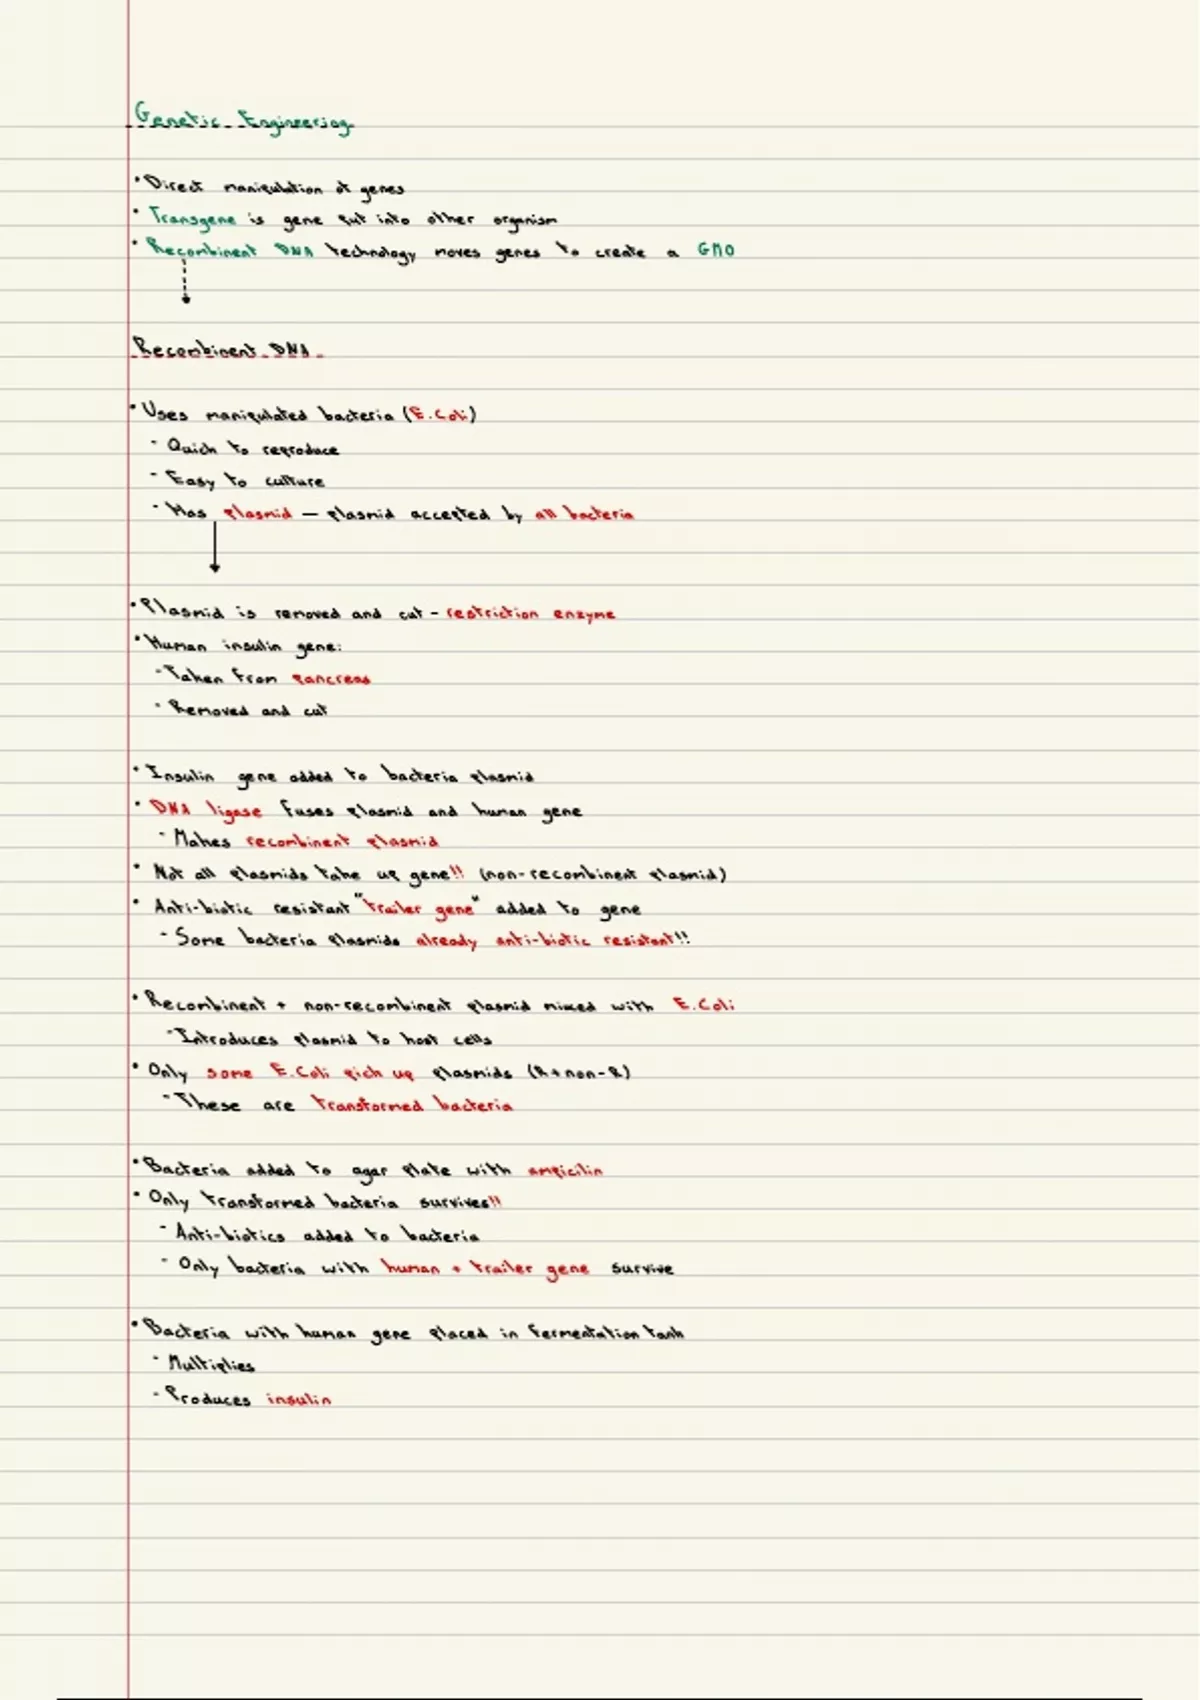 Genetic Engineering
• Direct manipulation of genes
• Transgene is gene put into other organism
• Recombinent DNA technology moves genes to create a GMO
Recombinent DNA
• Uses manipulated bacteria (E.Coli)
- Quick to reproduce
- Easy to culture
- Has plasmid — plasmid accepted by all bacteria
• Plasmid is removed and cut - restriction enzyme
• Human insulin gene:
- Taken from pancreas
- Removed and cut
• Insulin gene added to bacteria plasmid
• DNA ligase fuses plasmid and human gene
- Makes recombinent plasmid
• Not all plasmids take up gene!! (non-recombinent plasmid)
• Anti-biotic resistant "trailer gene" added to gene
- Some bacteria plasmids already anti-biotic resistant!!
• Recombinent + non-recombinent plasmid mixed with E.Coli
- Introduces plasmid to host cells
• Only some E.Coli pick up plasmids (R+non-R)
- These are transformed bacteria
• Bacteria added to agar plate with ampicilin
• Only transformed bacteria survives!!
- Anti-biotics added to bacteria
- Only bacteria with human + trailer gene survive
• Bacteria with human gene placed in fermentation tank
- Multiplies
- Produces insulin